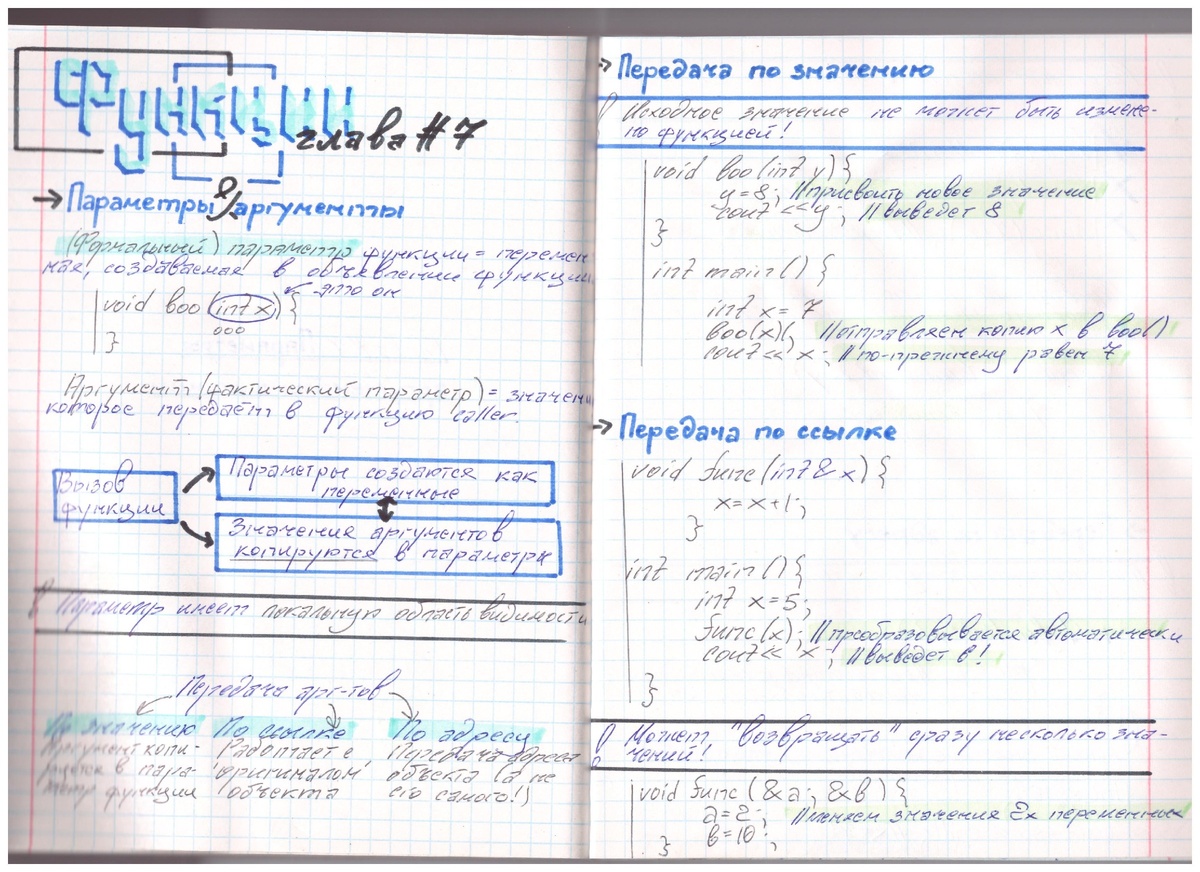 Функции
глава #7
→ Параметры & аргументы
(Формальный) параметр функции = перемен
ная, создаваемая в объявлении функции
это он
void boo (int x) {
}
Аргумент (фактический параметр) = значени
которое передаёт в функцию caller.
Вызов
функции
Параметры создаются как
переменные
Значения аргументов
копируются в параметры
Параметр имеет локальную область видимости
Передача арг-тов
По значению
Аргумент копи-
руется в пара-
метр функции
По ссылке
Работает с
оригиналом
объекта
По адресу
Передача адреса
объекта (а не
его самого!)
→ Передача по значению
Исходное значение не может быть измене-
но функцией!
void boo (int y) {
y=8; //присвоить новое значение
cout << y; //выведет 8
}
int main () {
int x = 7
boo(x); //отправляем копию x в boo()
cout << x; //по-прежнему равен 7
→ Передача по ссылке
void func (int& x) {
x=x+1;
}
int main () {
int x=5;
func (x); //преобразовывается автоматически
cout << x; //выведет 6!
}
Может "возвращать" сразу несколько зна-
чений!
void func (&a; &b) {
a=2; //меняем значения 2х переменных
b=10;
}